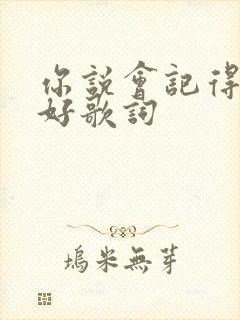 你説會記得
好歌詞
塢米無芽